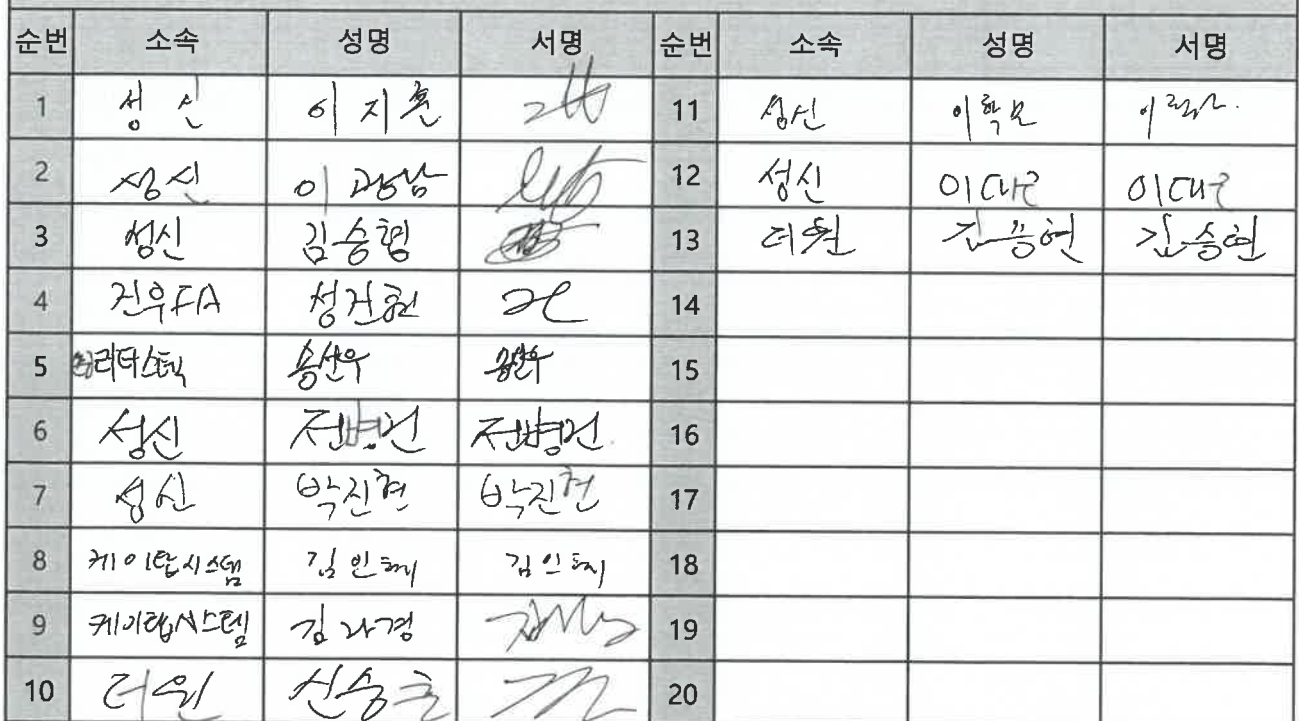 순번 소속 성명 서명 순번 소속 성명 서명
1 성신 이지훈 11 성신 이학모
2 성신 이광남 12 성신 이대근 이대근
3 성신 김승형 13 더원 김승현 김승현
4 건우FA 성건헌 14
5 리더스텍 송선우 송선우 15
6 성신 전병건 전병건 16
7 성신 박진현 박진현 17
8 케이탑시스템 김인혜 김인혜 18
9 케이탑시스템 김라경 19
10 더원 신승훈 20